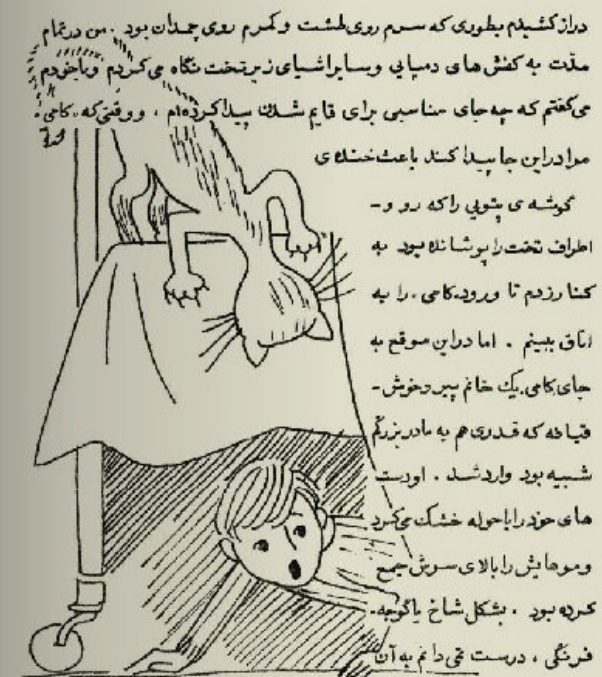 دراز کشیدم بطوری که سرم روی طشت و کمرم روی چمدان بود . من در تمام
مدّت به کفش های دمپایی و سایر اشیای زیر تخت نگاه می کردم و باخودم
می گفتم که چه جای مناسبی برای قایم شدن پیدا کرده‌ام ، و وقتی که ، کامی ،
مرا در این جا پیدا کند باعث خنده ی
گوشه ی پتویی را که رو و -
اطراف تخت را پوشانده بود به
کنار زدم تا ورود ، کامی ، را به
اتاق ببینم . اما در این موقع به
جای کامی یک خانم پیر و خوش -
قیافه که قدری هم به مادربزرگم
شبیه بود وارد شد . او دست
های خود را با حوله خشک می کرد
و موهایش را بالای سرش جمع
کرده بود . بشکل شاخ یا گوجه -
فرنگی ، درست نمی دانم به آن